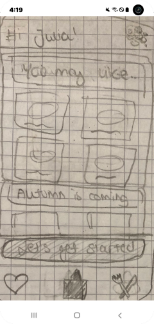 4:19
Hi Julia!
You may like..
Autumn is coming
Let's get started